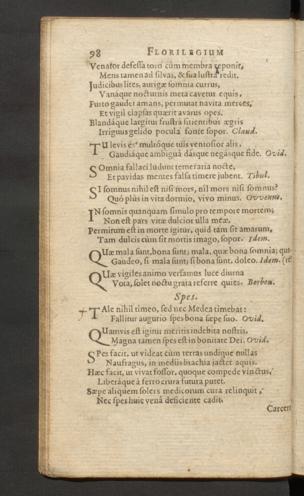 98 FLORILEGIUM
Venator defessa toro cùm membra reponit,
Mens tamen ad silvas, & sua lustra redit.
Judicibus lites, aurigæ somnia currus,
Vanáque nocturnis meta cavetur equis.
Furto gaudet amans, permutat navita merces,
Et vigil elapsas quærit avarus opes.
Blandáque largitur frustra sitientibus ægris
Irriguus gelido pocula fonte sopor. Claud.
TU levis és multóque tuis ventosior alis,
Gaudiáque ambiguâ dásque negásque fide. Ovid.
SOmnia fallaci ludunt temeraria nocte,
Et pavidas mentes falsa timere jubent. Tibul.
SI somnus nihil est nisi mors, nil mors nisi somnus?
Quó plùs in vita dormio, vivo minus. Ovvenus.
IN somnis quanquam simulo pro tempore mortem;
Non est pars vitæ dulcior ulla meæ.
Permirum est in morte igitur, quid tam sit amarum,
Tam dulcis cùm sit mortis imago, sopor. Idem.
QUæ mala sunt, bona sunt; mala, quæ bona somnia; qui
Gaudeo, si mala sunt; si bona sunt, doleo. Idem.
QUæ vigiles animo versamus luce diurna
Vota, solet noctu grata referre quies.
Spes.
TAle nihil timeo, sed nec Medea timebat:
Fallitur augurio spes bona sæpe suo. Ovid.
QUamvis est igitur meritis indebita nostris,
Magna tamen spes est in bonitate Dei. Ovid.
SPes facit, ut videat cùm terras undique nullas
Naufragus, in mediis brachia jactet aquis.
Hæc facit, ut vivat fossor, quoque compede vinctus,
Liberáque à ferro crura futura putet.
Sæpe aliquem solers medicorum cura relinquit,
Nec spes huic venâ deficiente cadit.